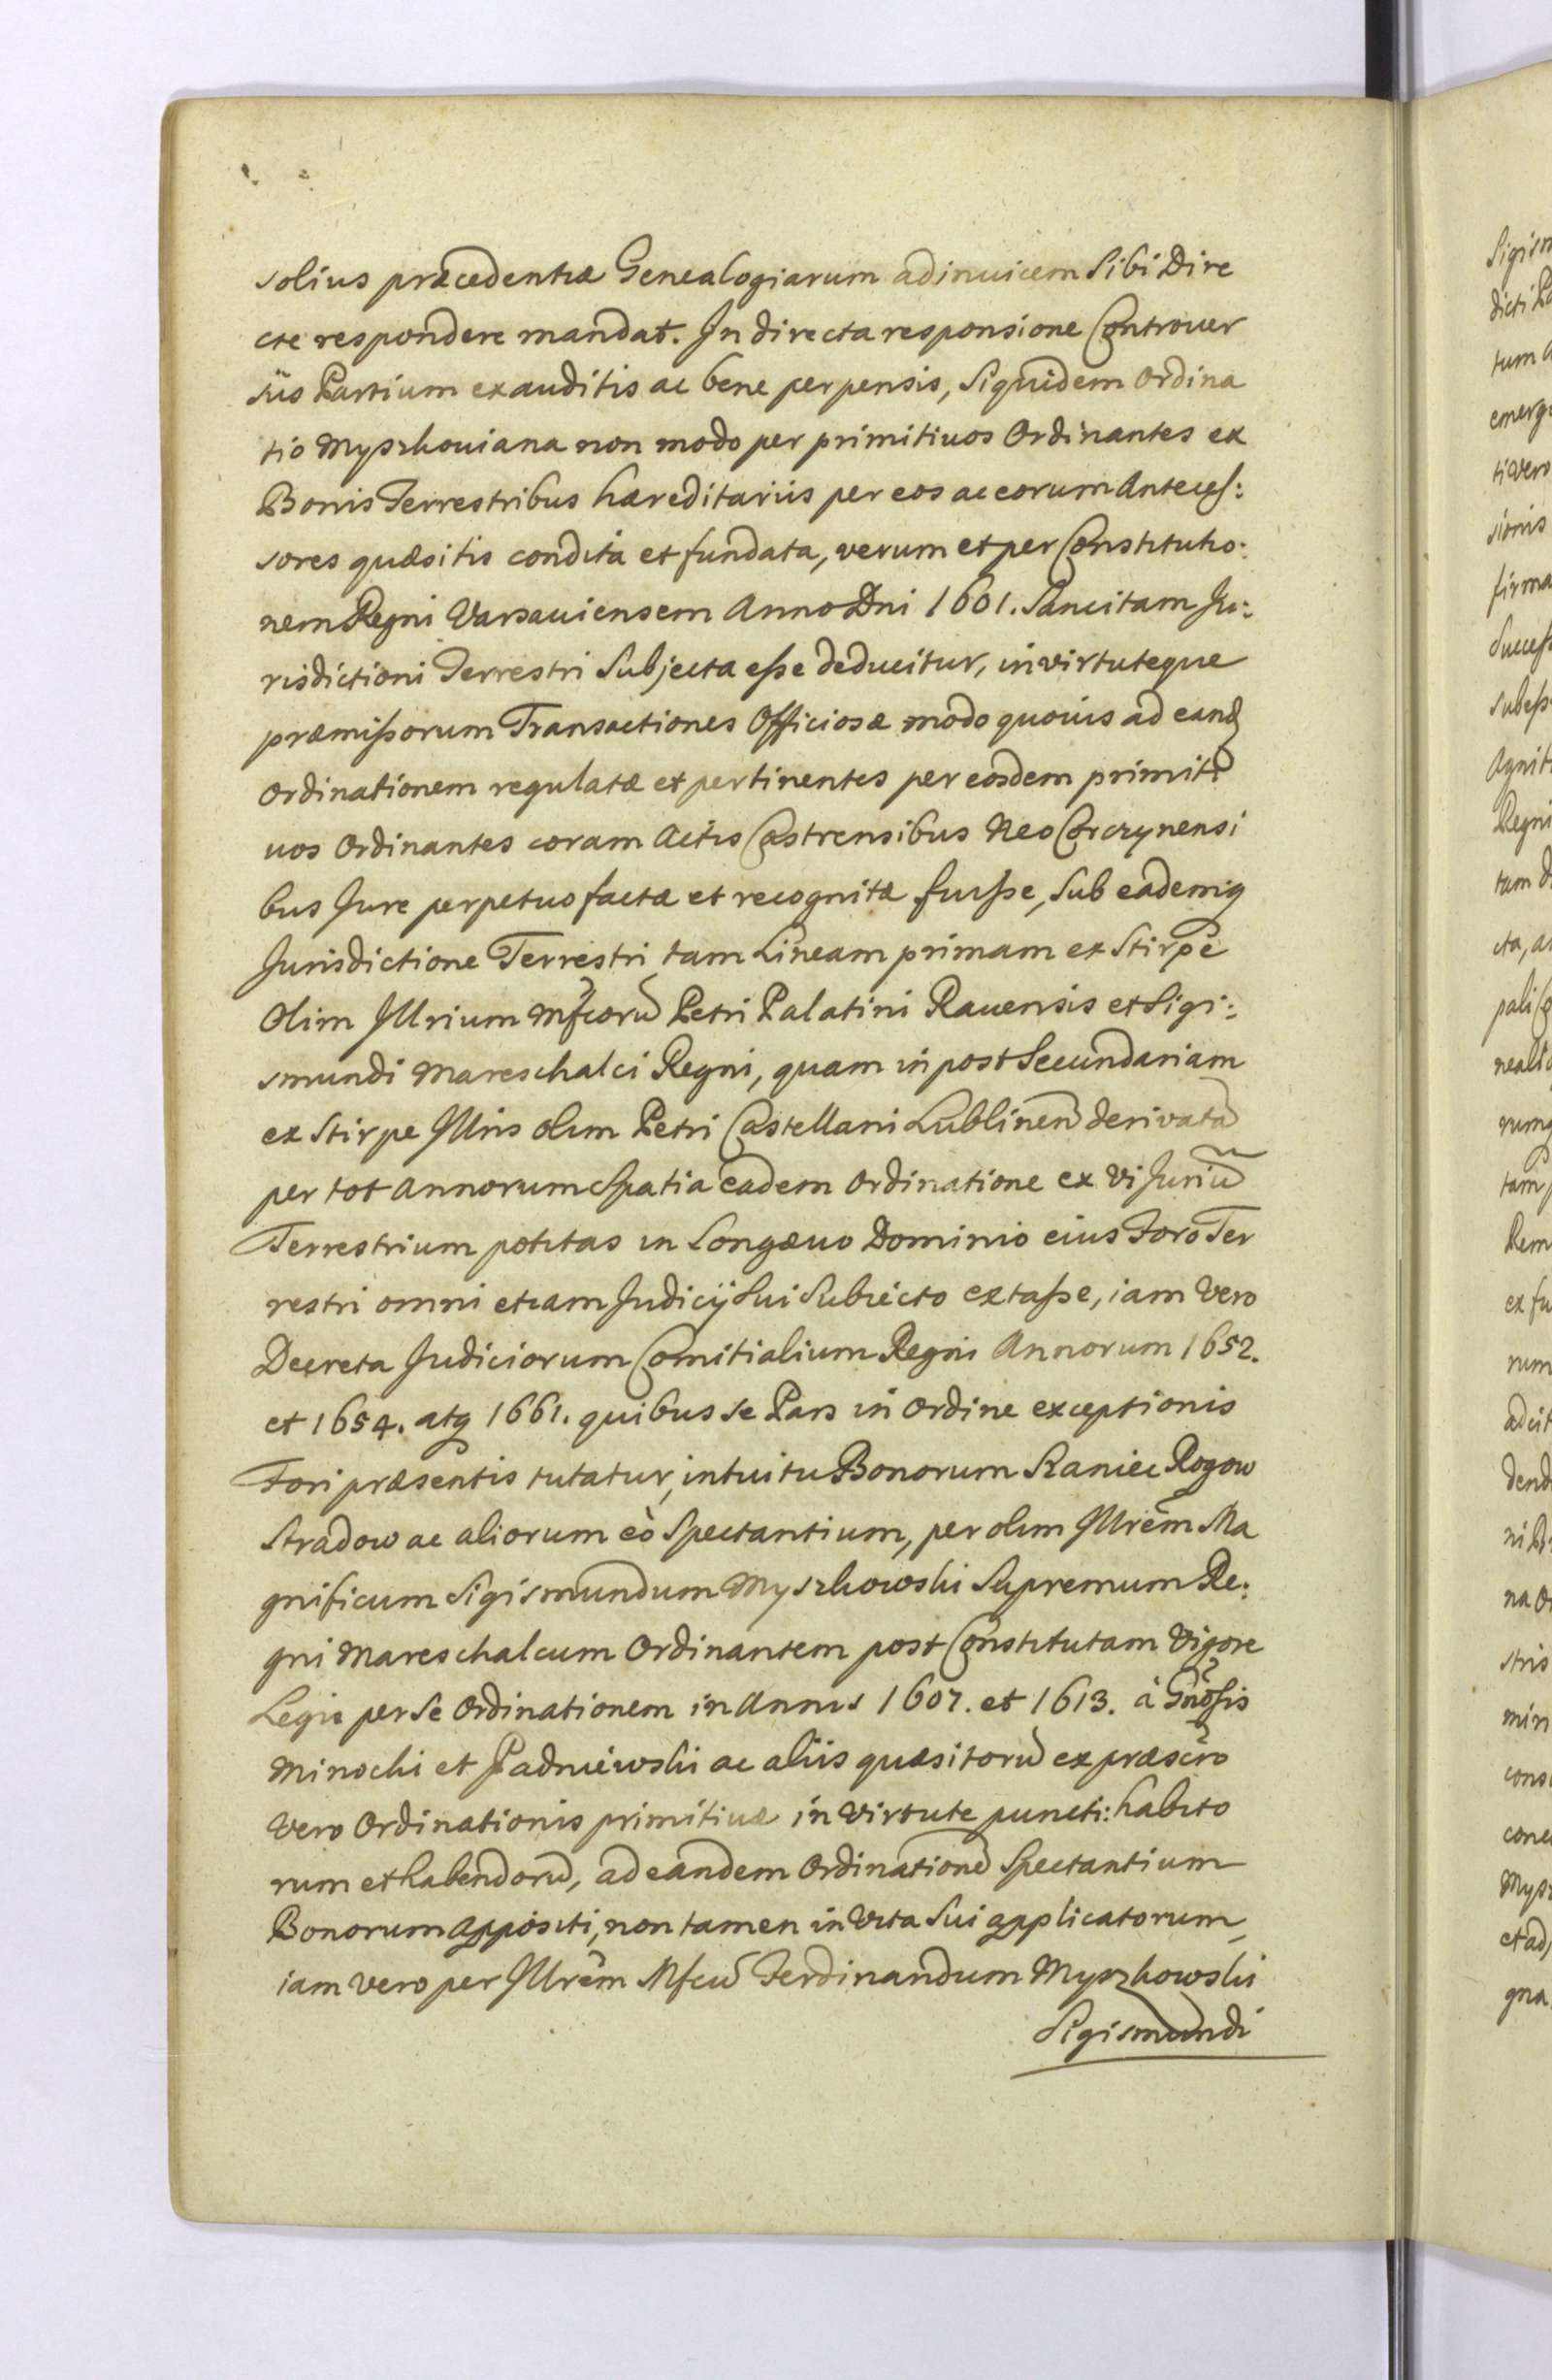 solius præcedentiæ Genealogiarum adinuicem Sibi Dire
cte respondere mandat. In directa responsione Controuer
sÿs Partium exauditis ac bene perpensis, Siquidem Ordina
tio Myszkouiana non modo per primitiuos Ordinantes ex
Bonis Terrestribus hæreditariis per eos ac eorum Antecess:
sores quæsitis condita et fundata, verum et per Constitutio:
nem Regni Varsauiensem Anno Dni 1601. Sancitam Ju:
risdictioni Terrestri Subjecta esse deducitur, in virtuteque
præmissorum Transactiones Officiosæ modo quouis ad eand
Ordinationem regulatæ et pertinentes per eosdem primiti
uos Ordinantes coram Actis Castrensibus Neo Corczynensi
bus Jure perpetuo factæ et recognitæ fuisse, Sub eademq
Jurisdictione Terrestri tam Lineam primam ex Stirpe
Olim Illrium Mfcorū Petri Palatini Rauensis et Sigi:
smundi Mareschalci Regni, quam in post Secundariam
ex Stirpe Illris olim Petri Castellani Lublinen derivatā
per tot Annorum Spatia eadem Ordinatione ex Vi Juriū
Terrestrium potitas in Longæuo Dominio eius Foro Ter
restri omni etiam Judicÿ Sui Subiecto extasse, iam Vero
Decreta Judiciorum Comitialium Regni Annorum 1652.
et 1654. atq 1661. quibus se Pars in Ordine exceptionis
Fori præsentis tutatur, intuitu Bonorum Xaniec Rogow
Stradow ac aliorum eò Spectantium, per olim Illrem Ma
gnificum Sigismundum Myszkowski Supremum Re:
gni Mareschalcum Ordinantem post Constitutam Vigore
Legis per Se Ordinationem in Annis 1607. et 1613. à Gnosis
Minocki et Padniewski ac aliis quæsitorū ex præscro
Vero Ordinationis primitiuæ in Virtute puncti: habito
rum et habendorū, ad eandem Ordinationē Spectantium
Bonorum appositi, non tamen in Vita Sui applicatorum,
iam vero per Illrem Mfcū Ferdinandum Myszkowski
Sigismundi